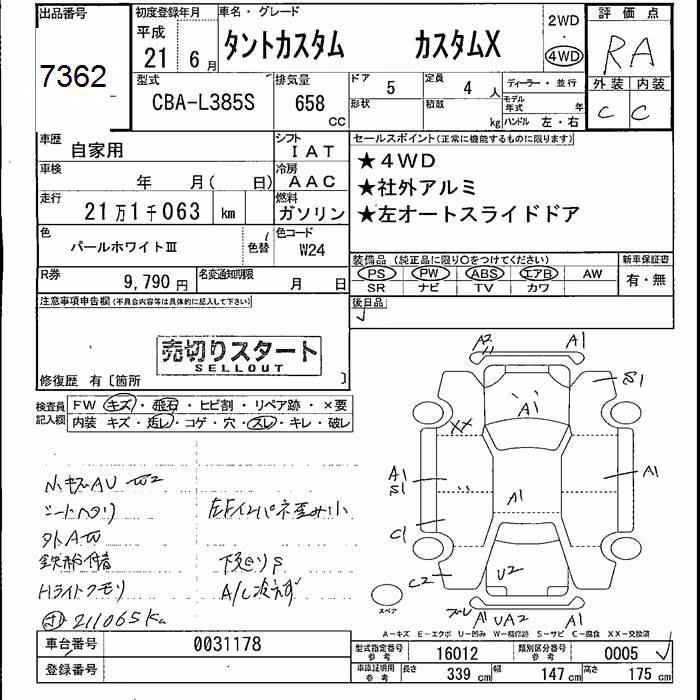 出品番号
7362
初度登録年月
平成
21 6月
車名・グレード
タントカスタム カスタムX
2WD
・
4WD
評価点
RA
外装 内装
C C
型式
CBA-L385S
排気量
658
CC
ドア
5
定員
4人
形状
積載
kg
ディーラー・並行
モデル年式 年
ハンドル 左・右
車歴
自家用
シフト
IAT
車検
年 月( 日)
冷房
AAC
走行
21万1千063 km
燃料
ガソリン
色
パールホワイトⅢ
色替
カラーコード
W24
R券
9,790円
名変通知期限
月 日
セールスポイント(正常に機能するものに限ります)
★4WD
★社外アルミ
★左オートスライドドア
装備品(純正品に限り○をつけてください)
新車保証書
PS PW ABS エアB AW
SR ナビ TV カワ
有・無
後日品
注意事項申告欄(不具合内容等は具体的に記入して下さい)
売切りスタート
SELLOUT
修復歴 有〔箇所 〕
検査員記入欄
FW キズ・飛石・ヒビ割・リペア跡・×要
内装 キズ・汚レ・コゲ・穴・スレ・キレ・破レ
小キズAU W2
シートヘタリ
外AW
Hライトクモリ
211065Km
下廻りS
A2 A1
A1
S1
XX
A1
S1
A1
A1
C1
C2
U2
A1 UA2 A1
スペア
A-キズ E-エクボ U-凹み W-補修跡 S-サビ C-腐食 XX-交換済
車台番号
0031178
登録番号
型式指定番号
参考
16012
類別区分番号
参考
0005
車庫証明用
参考
長さ 339cm
幅 147cm
高さ 175cm